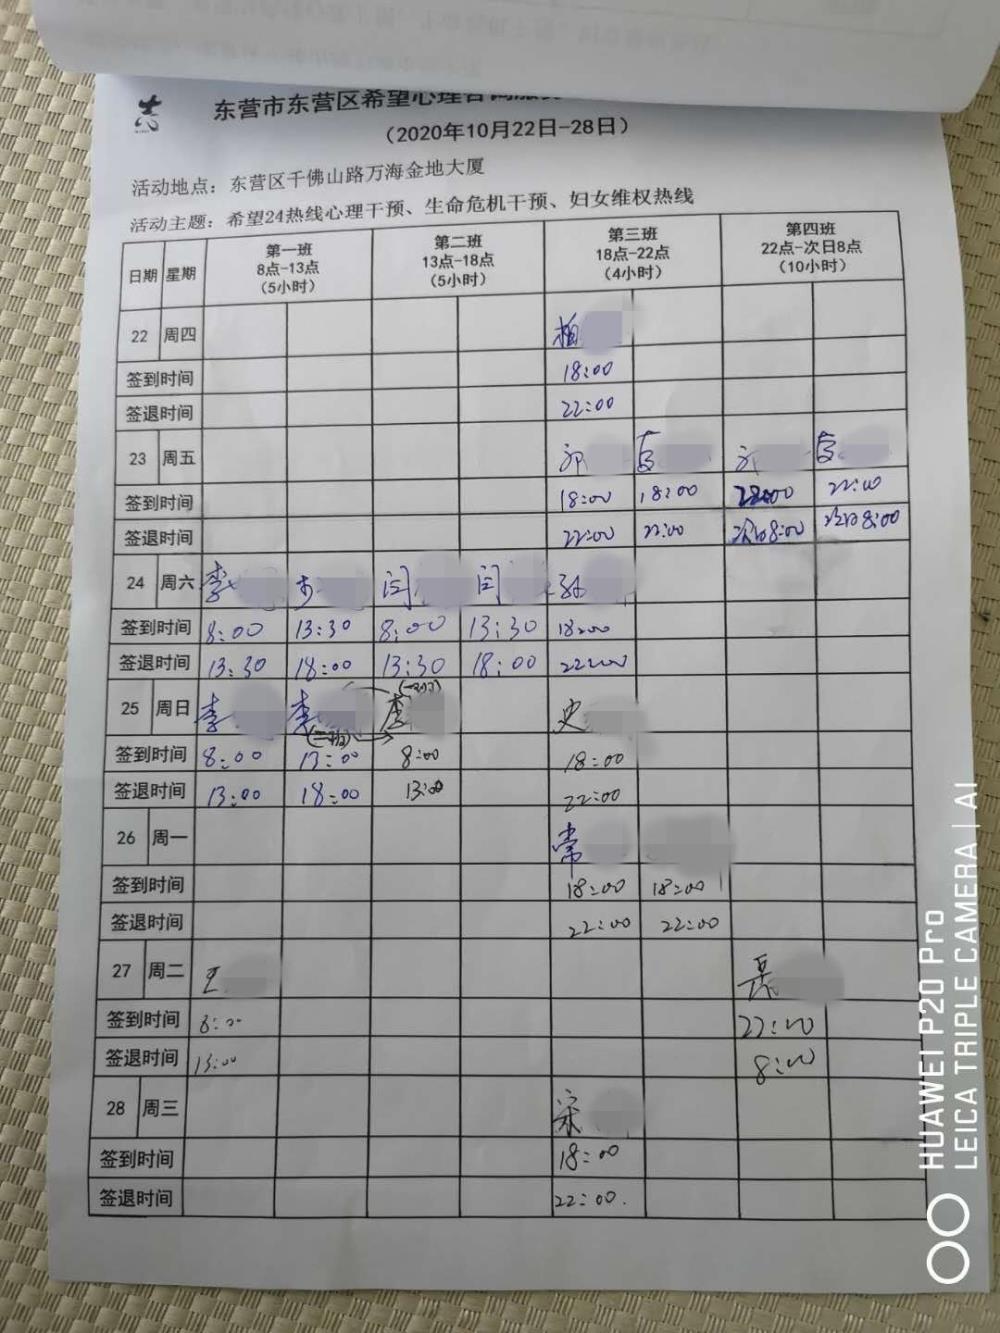 东营市东营区希望心理咨询服务
（2020年10月22日-28日）
活动地点：东营区千佛山路万海金地大厦
活动主题：希望24热线心理干预、生命危机干预、妇女维权热线
日期 星期 第一班 8点-13点 （5小时） 第二班 13点-18点 （5小时） 第三班 18点-22点 （4小时） 第四班 22点-次日8点 （10小时）
22 周四 柏
签到时间 18:00
签退时间 22:00
23 周五
签到时间 18:00 18:00 22:00 22:00
签退时间 22:00 22:00 次日8:00 次日8:00
24 周六 李 闫 闫 孙
签到时间 8:00 13:30 8:00 13:30 18:00
签退时间 13:30 18:00 13:30 18:00 22:00
25 周日 李 李 史
（二班）
签到时间 8:00 13:00 8:00 18:00
签退时间 13:00 18:00 13:00 22:00
26 周一 常
签到时间 18:00 18:00
签退时间 22:00 22:00
27 周二 王 聂
签到时间 8:00 22:00
签退时间 13:00 8:00
28 周三 宋
签到时间 18:00
签退时间 22:00.
HUAWEI P20 Pro
LEICA TRIPLE CAMERA | AI